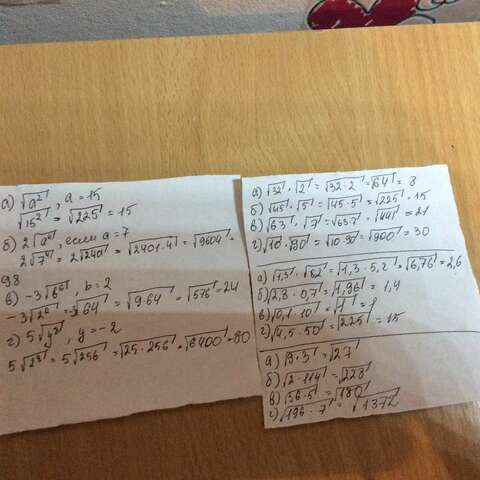 а) √a², a = 15
√15² = √225 = 15
б) 2√a⁴, если a = 7
2√7⁴ = 2√2401 = √2401·4 = √9604 =
98
в) -3√b⁶, b = 2
-3√2⁶ = -3√64 = √9·64 = √576 = 24
г) 5√y⁸, y = -2
5√2⁸ = 5√256 = √25·256 = √6400 = 80
а) √32 · √2 = √32·2 = √64 = 8
б) √45 · √5 = √45·5 = √225 = 15
в) √63 · √7 = √63·7 = √441 = 21
г) √10 · √90 = √10·90 = √900 = 30
= √1,3·5,2 = √6,76 = 2,6
б) √2,8·0,7 = √1,96 = 1,4
в) √0,1·10 = √1 = 1
г) √4,5·50 = √225 = 15
а) √9·3 = √27
б) √2·114 = √228
в) √36·5 = √180
г) √196·7 = √1372